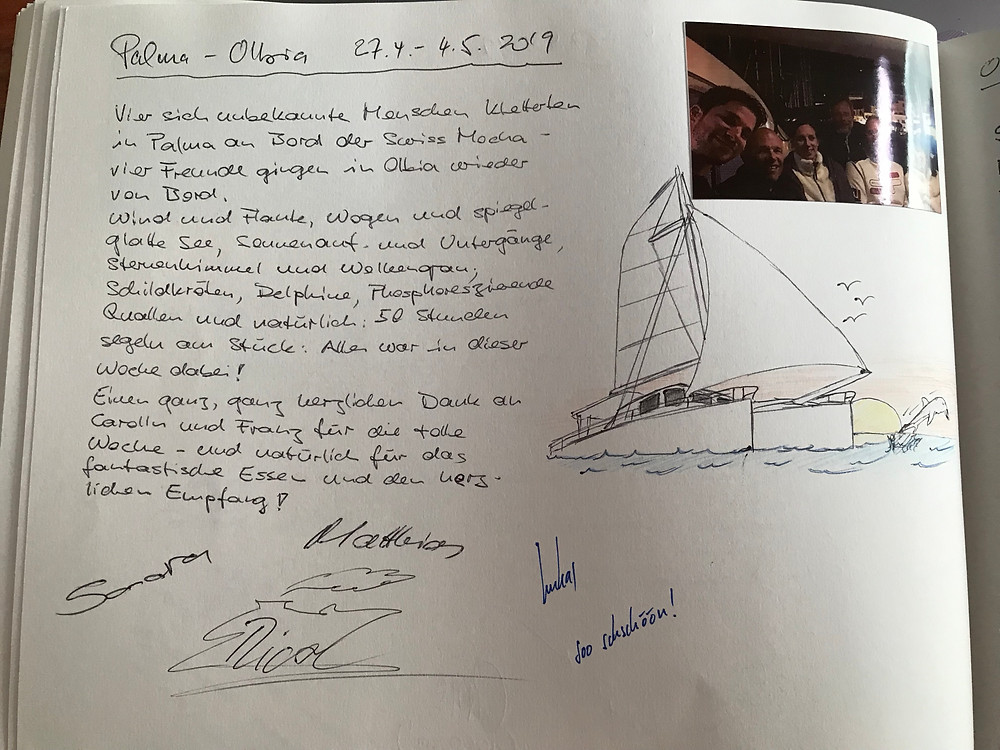 Palma - Olbia 27.4. - 4.5. 2019
Vier sich unbekannte Menschen kletterten
in Palma an Bord der Swiss Mocha -
vier Freunde gingen in Olbia wieder
von Bord.
Wind und Flaute, Wogen und spiegel-
glatte See, Sonnenauf- und Untergänge,
Sternenhimmel und Wolkengrau,
Schildkröten, Delphine, Phosphoreszierende
Quallen und natürlich: 50 Stunden
segeln am Stück: Alles war in dieser
Woche dabei!
Einen ganz, ganz herzlichen Dank an
Carolin und Franz für die tolle
Woche - und natürlich für das
fantastische Essen und den herz-
lichen Empfang!
Matthias
Sandra
Lukas
soo schschöön!